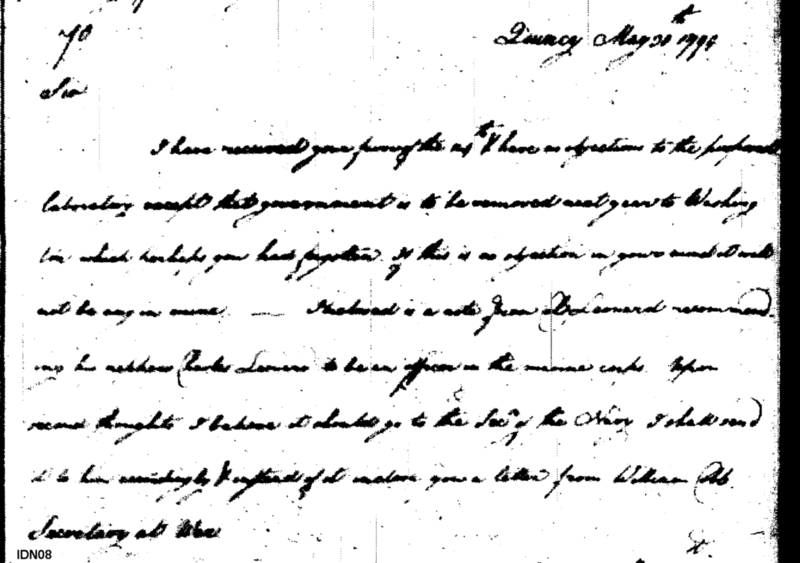 70
Quincy May 30th 1799
Sir
I have received your favor of the 24th & have no objections to the proposed
laboratory except that government is to be removed next year to Washing
ton which perhaps you had forgotten. If this is no objection in your mind it will
not be any in mine. — Inclosed is a note from Leonard recommend
ing his nephew Charles Leonard to be an officer in the marine corps. Upon
second thoughts I believe it should go to the Secy of the Navy I shall send
it to him accordingly & instead of it inclose you a letter from William
Secretary at War
IDN08